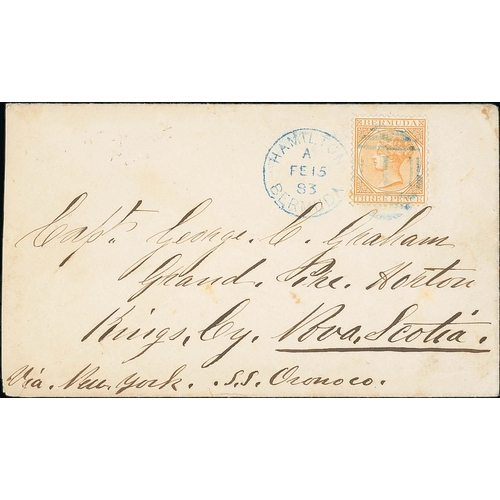 HAMILTON
A
FE 15
83
BERMUDA
BERMUDA
THREE PENCE
Capt. George. C. Graham
Grand. Pre. Horton
Kings, Cy. Nova, Scotia.
Via. New York. S.S. Oronoco.